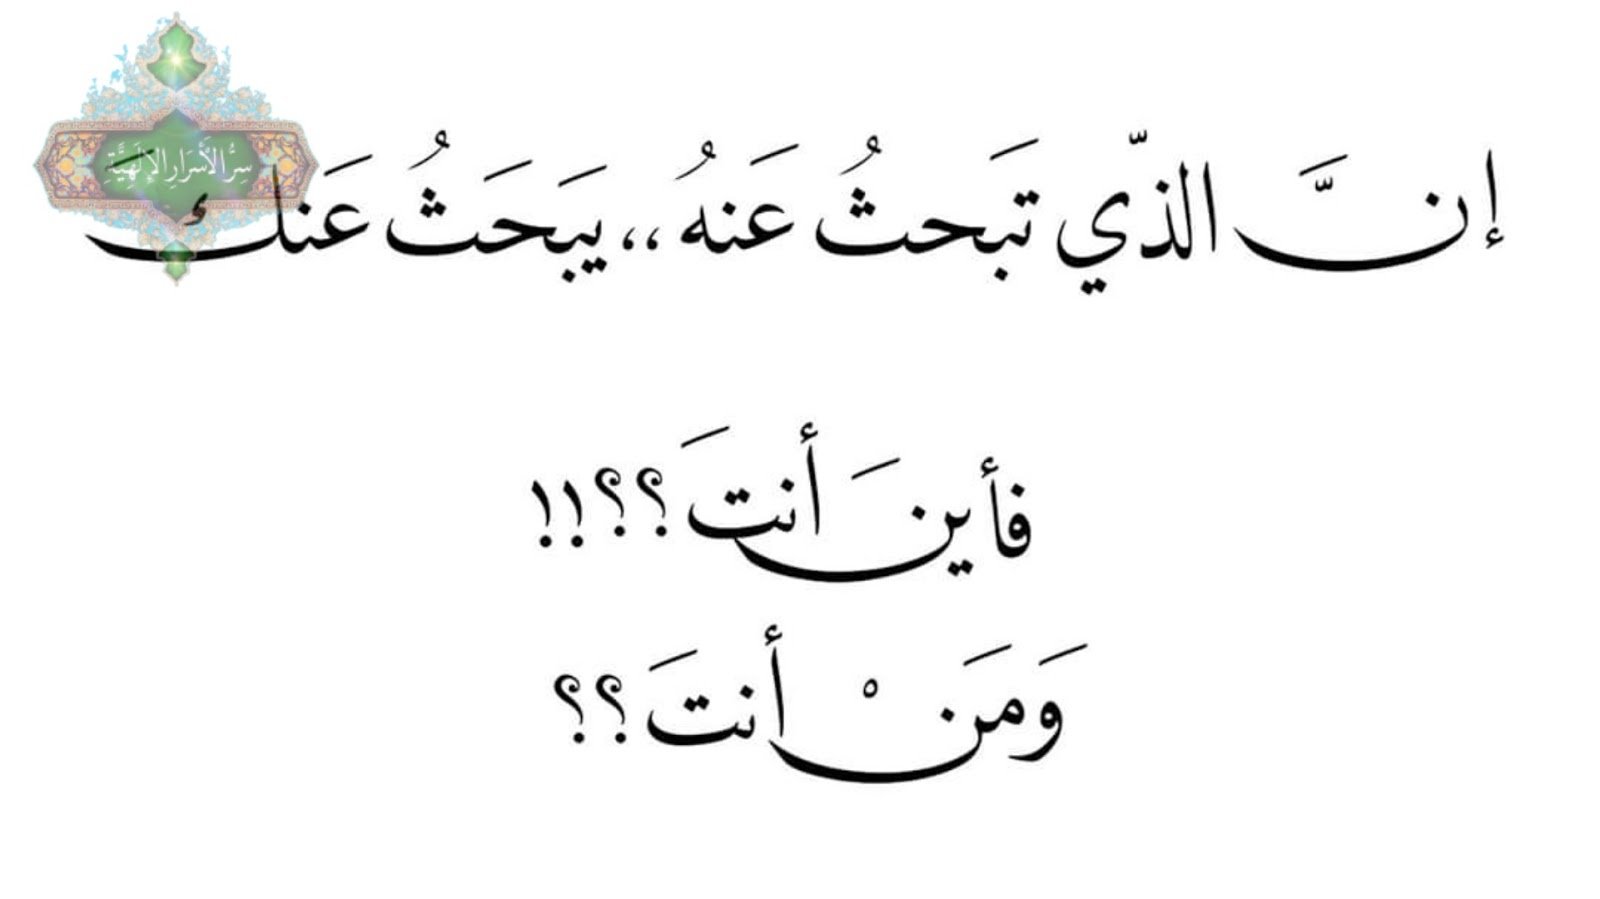 سِرُّ الأَسْرَارِ الإِلَهِيَّةِ
إنَّ الذّي تَبَحثُ عَنهُ،، يَبَحَثُ عَنكَ
فأينَ أنتَ؟؟!!
وَمَنْ أنتَ؟؟